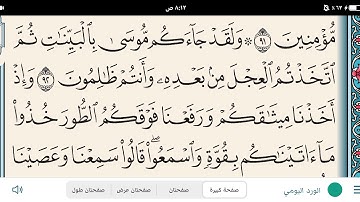 ٨:١٢ ص
٦٢ ٪
مُّؤۡمِنِينَ ٩١ ۞ وَلَقَدۡ جَآءَكُم مُّوسَىٰ بِٱلۡبَيِّنَٰتِ ثُمَّ
ٱتَّخَذۡتُمُ ٱلۡعِجۡلَ مِنۢ بَعۡدِهِۦ وَأَنتُمۡ ظَٰلِمُونَ ٩٢ وَإِذۡ
أَخَذۡنَا مِيثَٰقَكُمۡ وَرَفَعۡنَا فَوۡقَكُمُ ٱلطُّورَ خُذُواْ
مَآ ءَاتَيۡنَٰكُم بِقُوَّةٖ وَٱسۡمَعُواْۖ قَالُواْ سَمِعۡنَا وَعَصَيۡنَا
الورد اليومي
صفحة كبيرة
صفحتان
صفحتان عرض
صفحتان طول